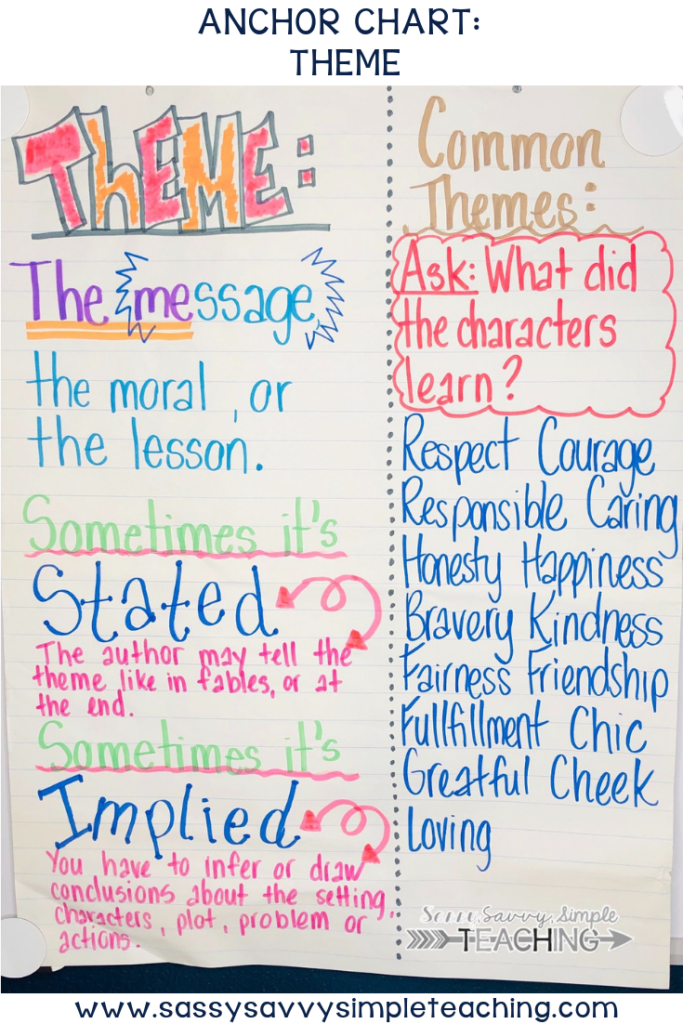 ANCHOR CHART:
THEME
THEME:
The message,
the moral, or
the lesson.
Sometimes it's
Stated
The author may tell the
theme like in fables, or at
the end.
Sometimes it's
Implied
You have to infer or draw
conclusions about the setting,
characters, plot, problem or
actions.
Common
Themes:
Ask: What did
the characters
learn?
Respect Courage
Responsible Caring
Honesty Happiness
Bravery Kindness
Fairness Friendship
Fullfillment Chic
Greatful Cheek
Loving
Savvy, Simple
TEACHING
www.sassysavvysimpleteaching.com